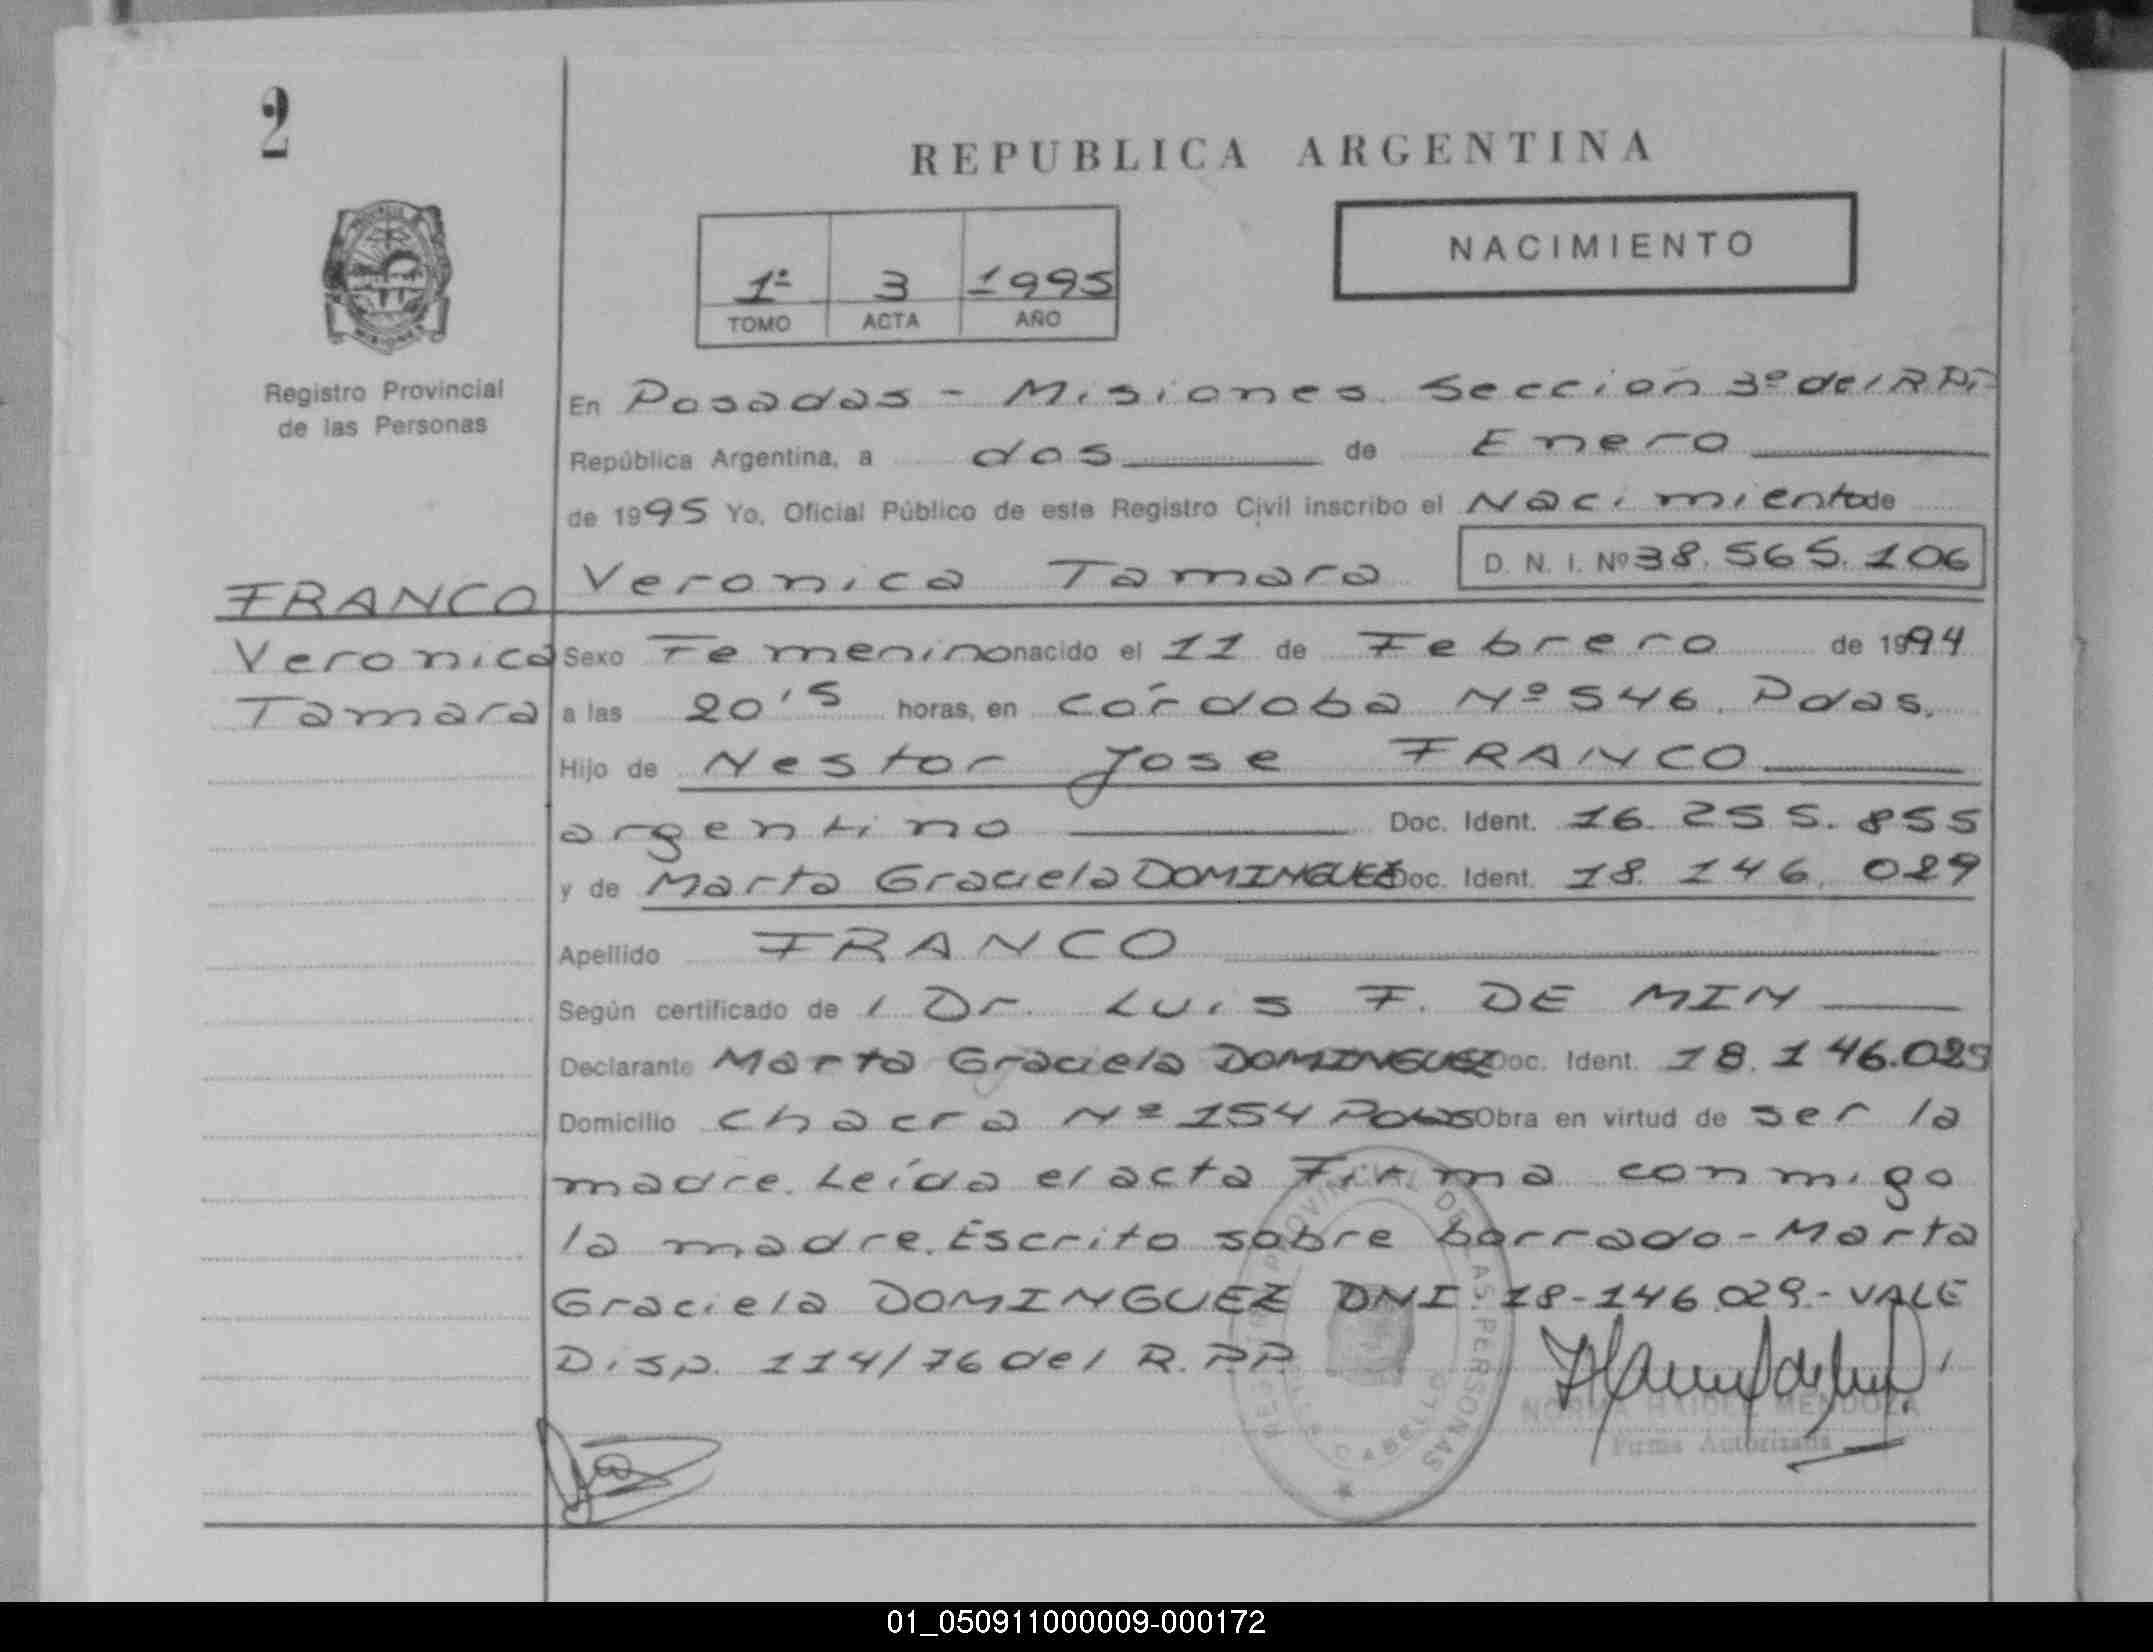 2
REPUBLICA ARGENTINA
NACIMIENTO
1ª 3 1995
TOMO ACTA AÑO
Registro Provincial
de las Personas
En Posadas - Misiones Sección 3º del R.P.
República Argentina, a dos de Enero
de 1995 Yo, Oficial Público de este Registro Civil inscribo el Nacimiento de
Veronica Tamara D. N. I. Nº 38.565.106
FRANCO
Veronica
Tamara
Sexo Femenino nacido el 11 de Febrero de 1994
a las 20's horas, en Córdoba Nº 546. Pdas.
Hijo de Nestor Jose FRANCO
argentino Doc. Ident. 16.255.855
y de Marta Graciela DOMINGUEZ Doc. Ident. 18.146.029
Apellido FRANCO
Según certificado de l Dr. Luis F. DE MIN
Declarante Marta Graciela DOMINGUEZ Doc. Ident. 18.146.029
Domicilio Chacra Nº 154 Pdas Obra en virtud de ser la
madre. Leída el acta Firma conmigo
la madre. Escrito sobre borrado - Marta
Graciela DOMINGUEZ DNI 18-146.029.- VALE
Disp. 114/76 del R.P.P.
REGISTRO PROVINCIAL DE LAS PERSONAS
CABELLO
NORMA HAIDEE MENDOZA
Firma Autorizada
01_050911000009-000172